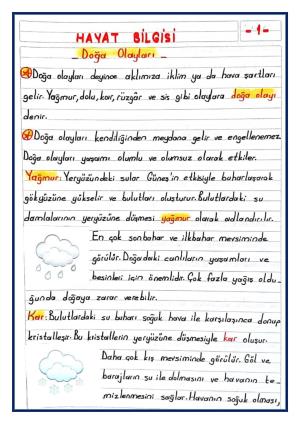 HAYAT BİLGİSİ
- 1 -
- Doğa Olayları -
Doğa olayları deyince aklımıza iklim ya da hava şartları
gelir. Yağmur, dolu, kar, rüzgâr ve sis gibi olaylara doğa olayı
denir.
Doğa olayları kendiliğinden meydana gelir ve engellenemez.
Doğa olayları yaşamı olumlu ve olumsuz olarak etkiler.
Yağmur: Yeryüzündeki sular Güneş'in etkisiyle buharlaşarak
gökyüzüne yükselir ve bulutları oluşturur. Bulutlardaki su
damlalarının yeryüzüne düşmesi yağmur olarak adlandırılır.
En çok sonbahar ve ilkbahar mersiminde
görülür. Doğadaki canlıların yaşamları ve
besinleri için önemlidir. Çok fazla yağış oldu-
ğunda doğaya zarar verebilir.
Kar: Bulutlardaki su buharı soğuk hava ile karşılaşınca donup
kristalleşir. Bu kristallerin yeryüzüne düşmesiyle kar oluşur.
Daha çok kış mersiminde görülür. Göl ve
barajların su ile dolmasını ve havanın te-
mizlenmesini sağlar. Havanın soğuk olması,